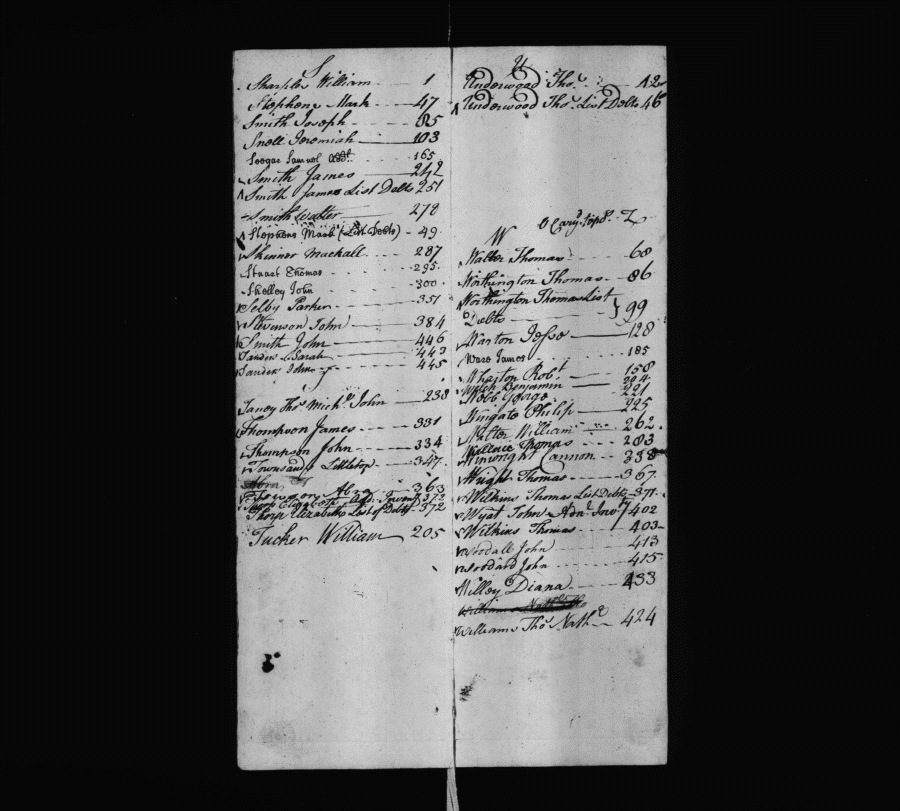 S
Sharples William 1
Stephens Mark 47
Smith Joseph 85
Snell Jeremiah 103
Soogar Samuel Add.l 165
Smith James 242
Smith James List Debts 251
Smith Walter 278
Stephens Mark (List Debts) 49
Skinner Mackall 287
Stuart Thomas 295
Shelley John 300
Selby Parker 351
Stevenson John 384
Smith John 446
Sanders Sarah 443
Sander John 445
Taney Tho.s Mich.l John 238
Thompson James 331
Thompson John 334
Townsand Littleton 347
Abra 363
Elizabeth Add. Invent 372
Thorp Elizabeth List of Debts 372
Tucker William 205
U
Underwood Tho.s 12
Underwood Tho.s List Debts 46
W
Walter Thomas 68
Worthington Thomas 86
Worthington Thomas List
Debts } 99
Warton Jesse 128
Ware James 185
Wharton Rob.t 158
Welch Benjamin 204
Webb George 221
Wingate Philip 225
Walter William 262
Wallace Thomas 283
Winwright Cannon 338
Wright Thomas 367
Wilkins Thomas List Debts 371
Wyat John Adn.l Inv.y 402
Wilkins Thomas 403
Woodall John 413
Woodard John 415
Willey Diana 433
Williams Tho.s Nath.l 424